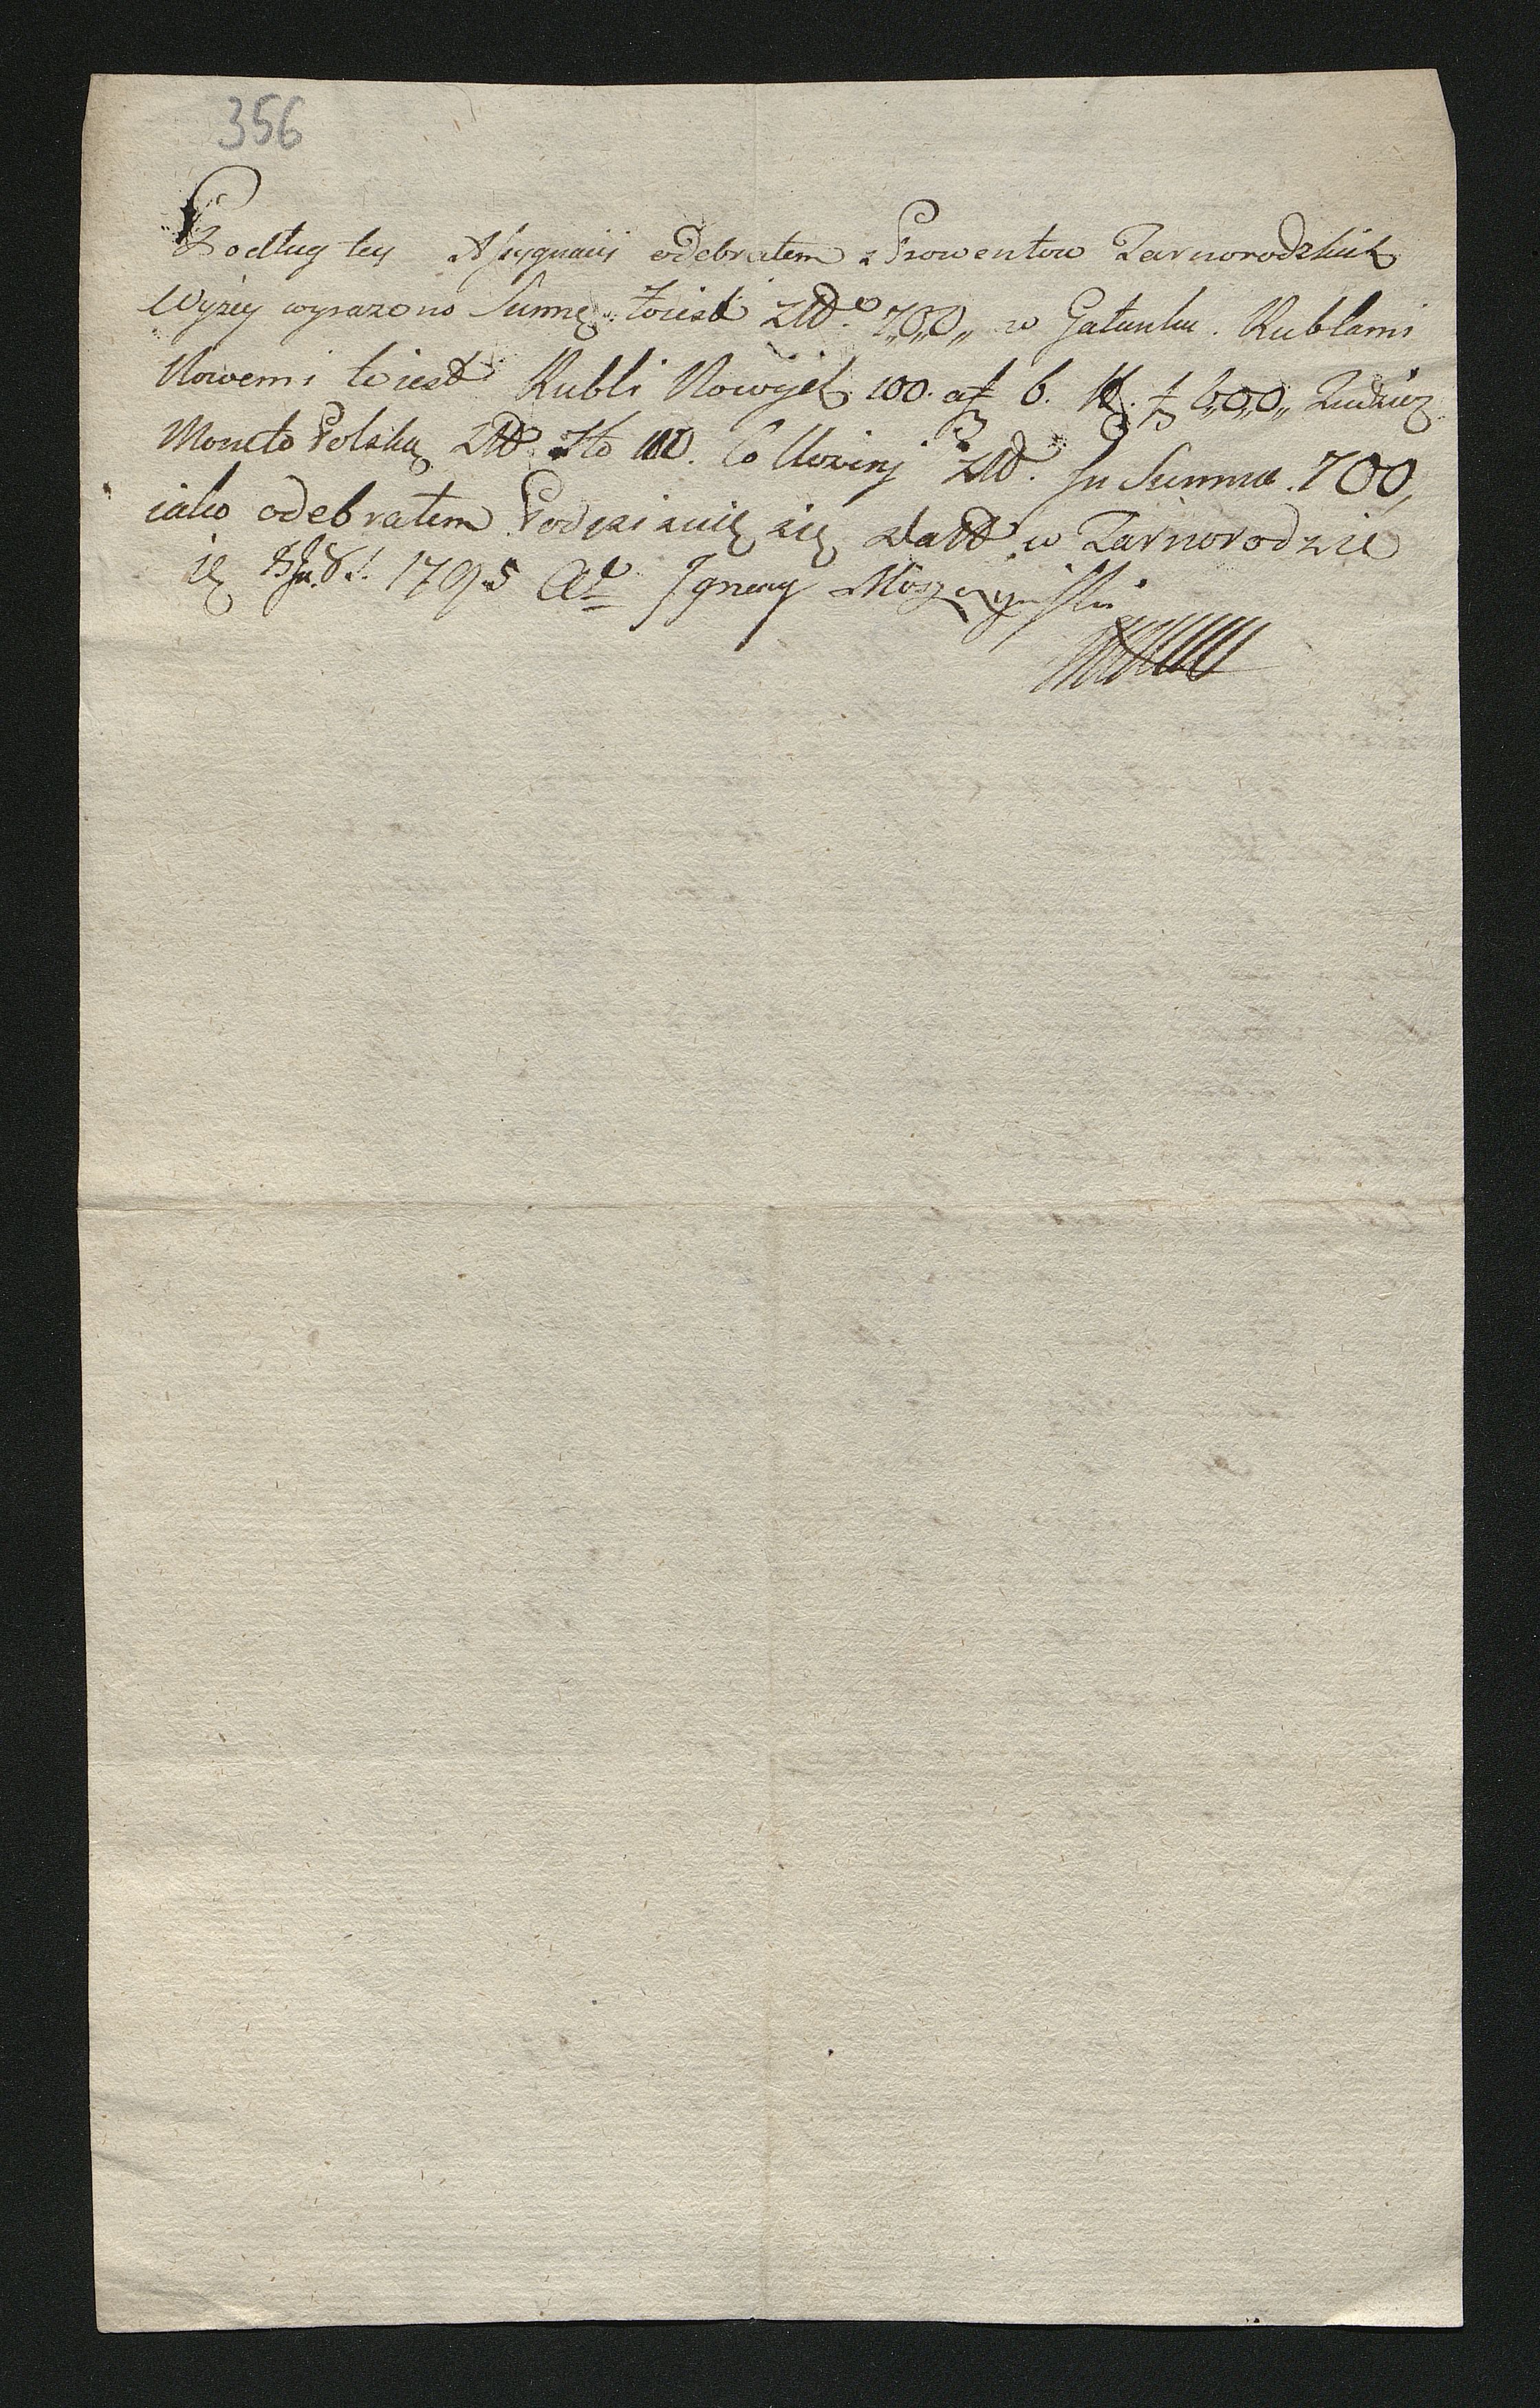 356
Podług tey Assygnacij odebrałem z Prowentow Tarnorodzkich
Wyżey wyrazono Summę toiest Złłd. 700, w Gatunku. Rublami
Nowemi to iest Rubli Nowych 100. a f 6. f 600,
Moneto Polską Złłd Sto 100. Co Uczinj Złłd. In Summa. 700,
iako odebrałem Podpisuię się Datt w Tarnorodzie
1795 Ao Ignacy Moszczynski